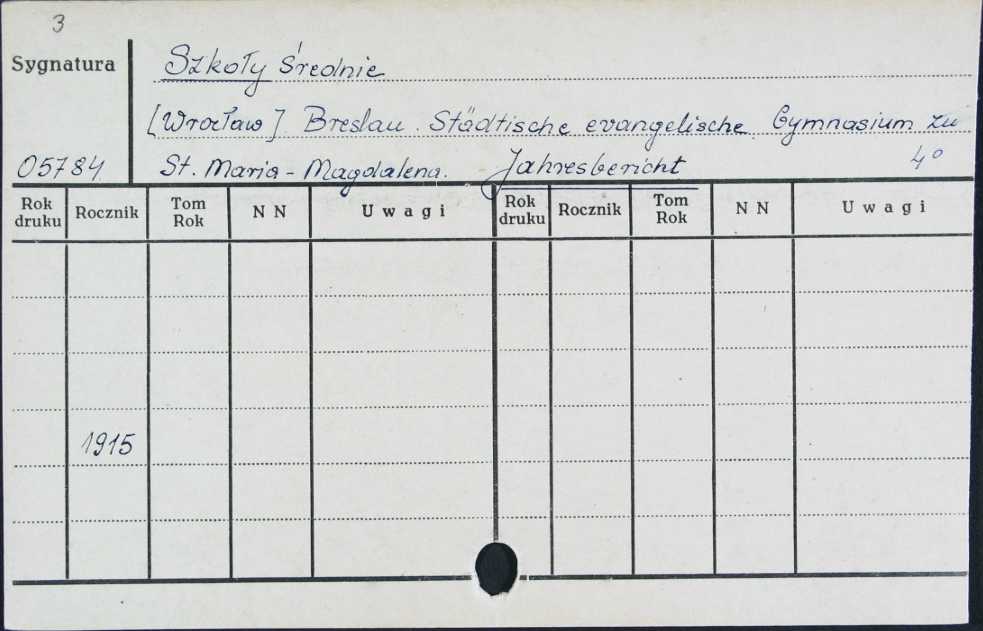 3
Sygnatura
Szkoły Średnie
[Wrocław]. Breslau. Städtische evangelische Gymnasium zu
05784 St. Maria-Magdalena. Jahresbericht 4°
Rok druku Rocznik Tom Rok N N Uwagi Rok druku Rocznik Tom Rok N N Uwagi
1915